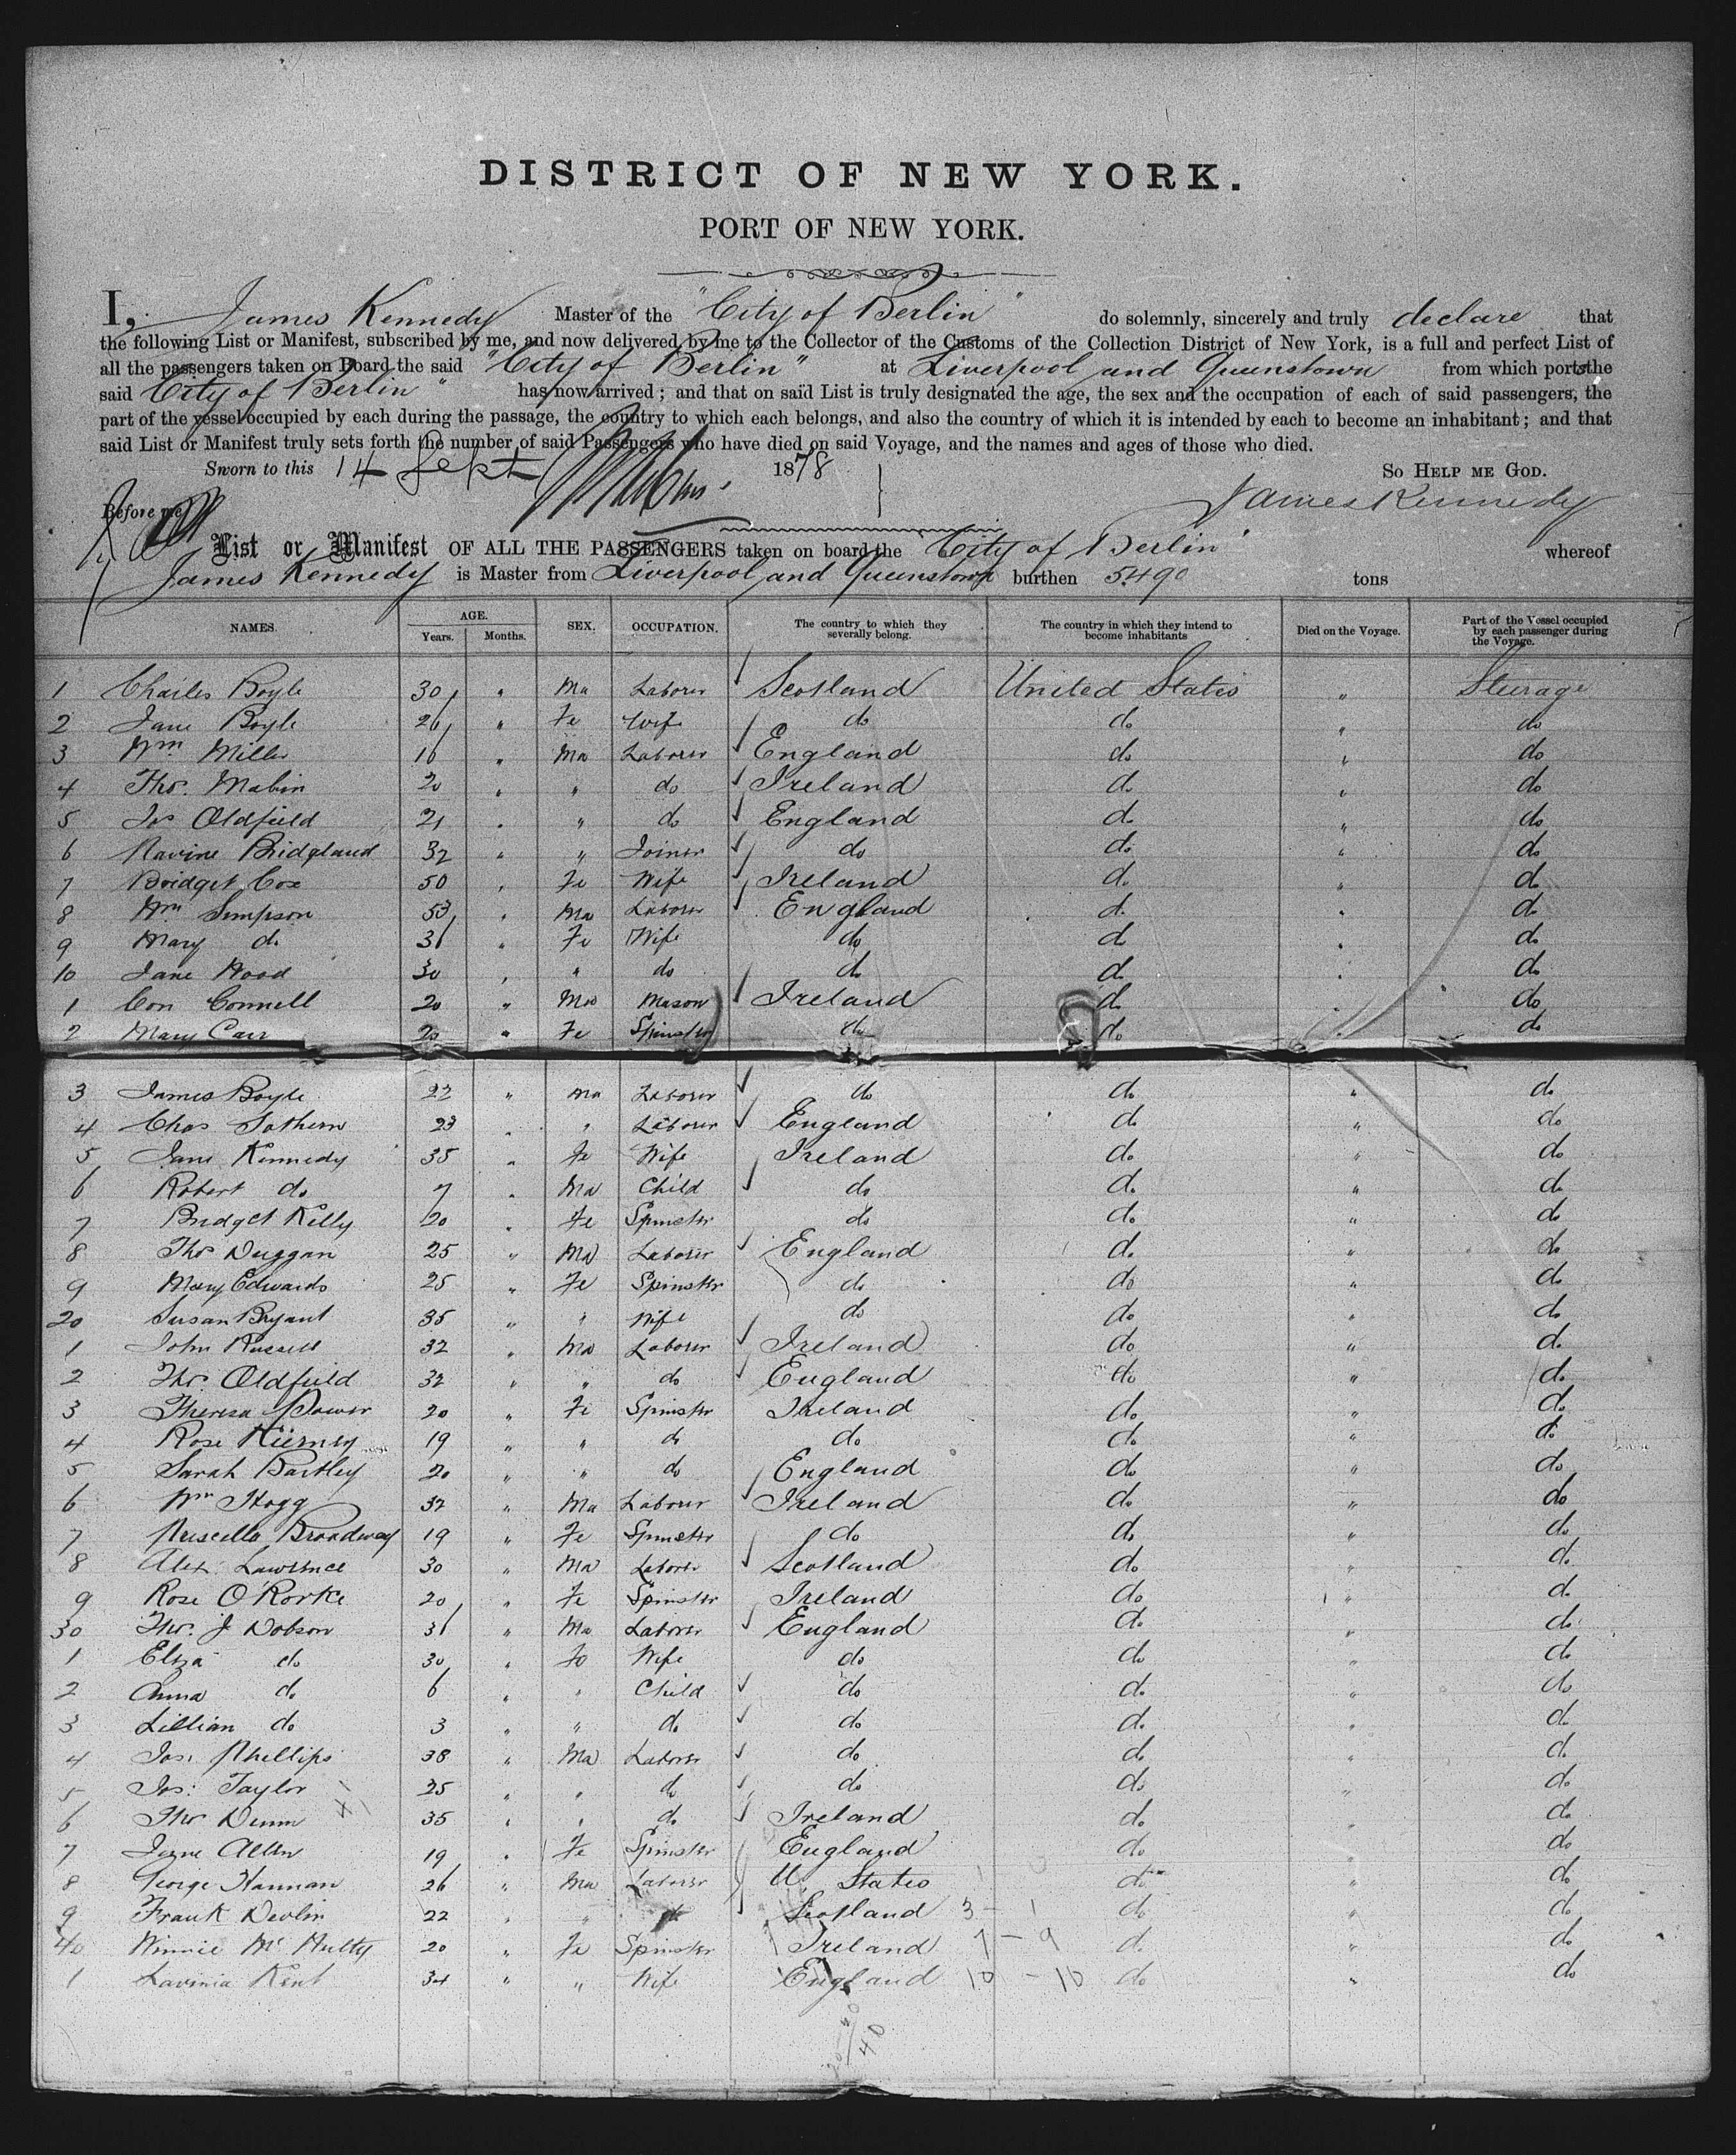 DISTRICT OF NEW YORK.
PORT OF NEW YORK.
I, James Kennedy Master of the "City of Berlin" do solemnly, sincerely and truly declare that
the following List or Manifest, subscribed by me, and now delivered by me to the Collector of the Customs of the Collection District of New York, is a full and perfect List of
all the passengers taken on Board the said "City of Berlin" at Liverpool and Queenstown from which ports the
said City of Berlin" has now arrived; and that on said List is truly designated the age, the sex and the occupation of each of said passengers, the
part of the vessel occupied by each during the passage, the country to which each belongs, and also the country of which it is intended by each to become an inhabitant; and that
said List or Manifest truly sets forth the number of said Passengers who have died on said Voyage, and the names and ages of those who died.
Sworn to this 14 Sept 1878 So Help me God.
Before me James Kennedy
List or Manifest OF ALL THE PASSENGERS taken on board the "City of Berlin" whereof
James Kennedy is Master from Liverpool and Queenstown burthen 5490 tons
NAMES. AGE. Years. Months. SEX. OCCUPATION. The country to which they severally belong. The country in which they intend to become inhabitants Died on the Voyage. Part of the Vessel occupied by each passenger during the Voyage.
1 Charles Boyle 30 " Ma Laborer Scotland United States " Steerage
2 Jane Boyle 26 " Fe Wife do do " do
3 Wm Miller 16 " Ma Laborer England do " do
4 Thos. Mabin 20 " " do Ireland do " do
5 Jos Oldfield 21 " " do England do " do
6 Bridgland 32 " " Joiner do do " do
7 Bridget Cox 50 " Fe Wife Ireland do " do
8 Wm Simpson 53 " Ma Laborer England do " do
9 Mary do 36 " Fe Wife do do " do
10 Jane Wood 30 " " do do do " do
1 Con Connell 20 " Ma Mason Ireland do " do
2 Mary Carr 20 " Fe Spinster do do " do
3 James Boyle 22 " Ma Laborer do do " do
4 Chas Sothern 23 " " Laborer England do " do
5 Jane Kennedy 35 " Fe Wife Ireland do " do
6 Robert do 7 " Ma Child do do " do
7 Bridget Kelly 20 " Fe Spinster do do " do
8 Thos Duggan 25 " Ma Laborer England do " do
9 Mary Edwards 25 " Fe Spinster do do " do
20 Susan Bryant 35 " " Wife do do " do
1 John Russell 32 " Ma Laborer Ireland do " do
2 Thos Oldfield 32 " " do England do " do
3 Theresa Power 20 " Fe Spinster Ireland do " do
4 Rose Kierney 19 " " do do do " do
5 Sarah Bartley 20 " " do England do " do
6 Wm Hogg 32 " Ma Laborer Ireland do " do
7 Priscella Broadway 19 " Fe Spinster do do " do
8 Alex. Lawrence 30 " Ma Laborer Scotland do " do
9 Rose O'Rorke 20 " Fe Spinster Ireland do " do
30 Thos. J Dobson 36 " Ma Laborer England do " do
1 Eliza do 30 " Fe Wife do do " do
2 Anna do 6 " " Child do do " do
3 Lillian do 3 " " do do do " do
4 Jos. Phillips 38 " Ma Laborer do do " do
5 Jos: Taylor 25 " " do do do " do
6 Thos Dunn 35 " " do Ireland do " do
7 Jane Allen 19 " Fe Spinster England do " do
8 George Hannan 26 " Ma Laborer U. States do " do
9 Frank Devlin 22 " " do Scotland 3 - 1 do " do
40 Winnie McNulty 20 " Fe Spinster Ireland 7 - 9 do " do
1 Lavinia Kent 34 " " Wife England 10 - 10 do " do
40